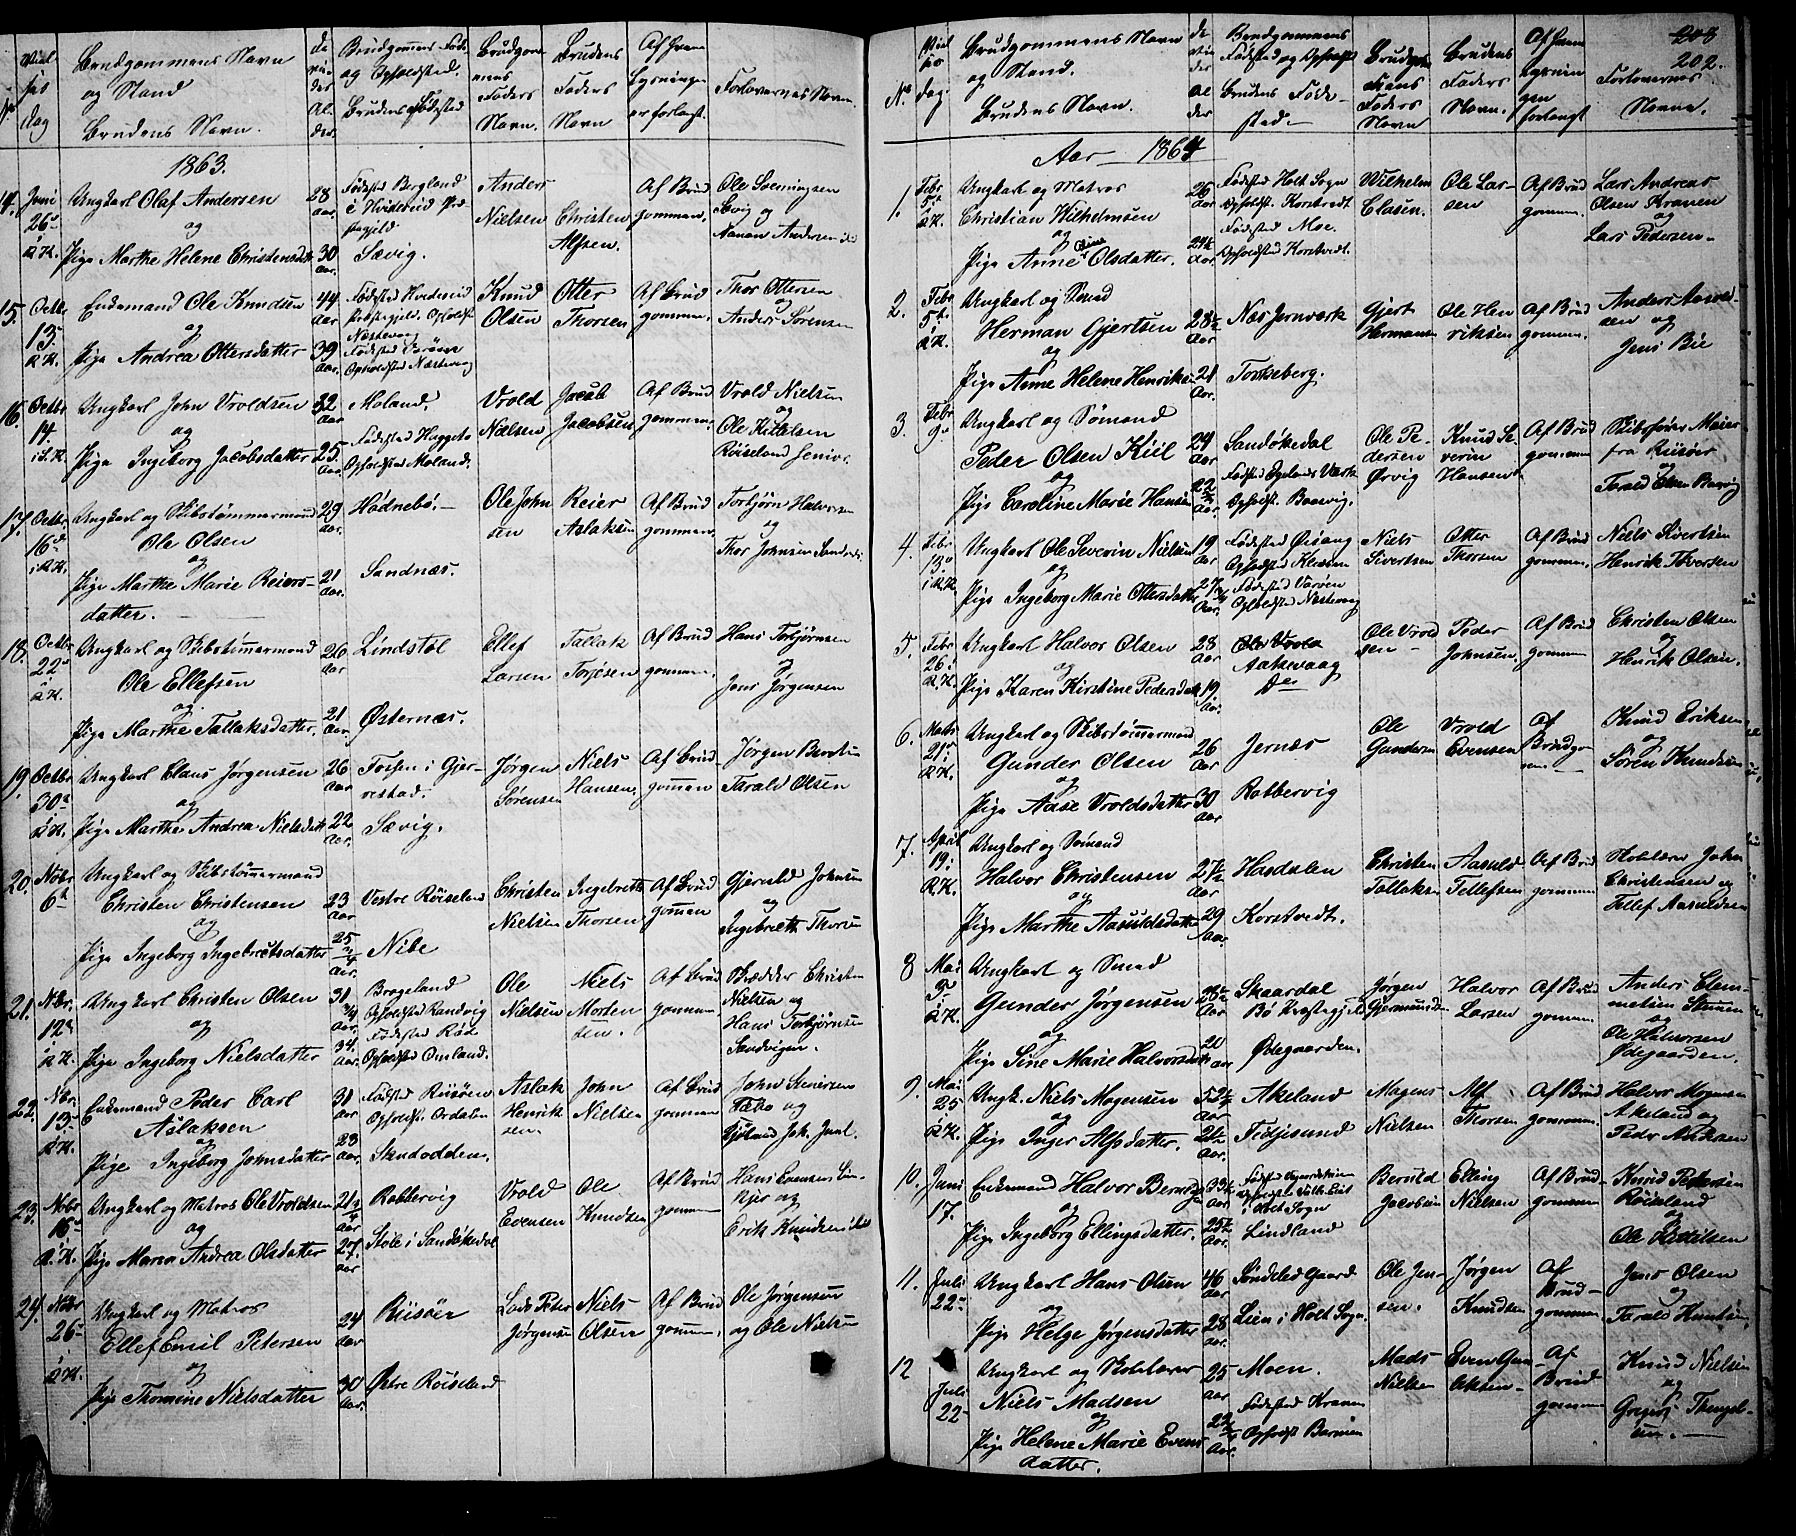 Brudgommens Navn
og Stand
Brudens Navn.
Brudgommens Føde-
og Opholdsted.
Brudens Fødested
Brudgom-
mens
Faders
Navn.
Brudens
Faders
Navn
Af hvem
Lysningen
er forlangt.
Forlovernes Navne.
1863.
14. Juni 26de i R.K.
Ungkarl Olaf Andersen
og
Pige Marthe Helene Christensdatter
28 Aar
30 Aar.
Fødested Bergland
i Hvideseid Præ-
stegjeld
Sævig.
Anders
Nielsen
Christen
Alfsen.
Af Brud
gommen.
Ole Sveningsen
Sævig og
Nanan Andersen
15. Octbr 13. R.K.
Enkemand Ole Knudsen
og
Pige Andrea Ottersdatter
44 Aar
39 Aar.
Fødested Hvideseid
Præstegjeld. Opholdst
Næstevaag
Fødested Varöen
Opholdsted Næstevaag
Knud
Olsen
Otter
Thorsen
Af Brud
gommen.
Thor Ottersen
og
Anders Sørensen
16. Octbr 14.
Ungkarl John Vroldsen
og
Pige Ingeborg Jacobsdatter
32 Aar
25 Aar.
Moland.
Fødested Haggeto
Opholdsted Moland.
Vrold
Nielsen
Jacob
Jacobsen
Af Brud
gommen.
Vrold Nielsen
og
Ole Kittelsen
Röiseland Senior.
17. Octbr 16de i R.K.
Ungkarl og Skibstømmermand
Ole Olsen
og
Pige Marthe Marie Reiers-
datter.
29 Aar.
21 Aar.
Hödnebö.
Sandnæs.
Ole John
sen
Reier
Aslaksen
Af Brud
gommen
Torbjörn Halvorsen
og
Thor Johnsen Sandnæs
18. Octbr 22de i R.K.
Ungkarl og Skibstömmermand
Ole Ellefsen
og
Pige Marthe Tallaksdatter.
26 Aar
21 Aar.
Lindstöl
Østernæs.
Ellef
Larsen
Tallak
Torjesen
Af Brud
gommen.
Hans Torbjørnsen
og
Jens Jørgensen
19. Octbr 30te i R.K.
Ungkarl Claus Jørgensen
og
Pige Marthe Andrea Nielsdatter
26 Aar
22 Aar.
Torsen i Gjer-
restad.
Sævig.
Jørgen
Sørensen
Niels
Hansen.
Af Brud-
gommen
Jørgen
Tarald Olsen
20. Nobr 6te
Ungkarl og Skibstømmermand
Christen Christensen
og
Pige Ingeborg Ingebretsdatter
23 Aar
25 3/4 Aar.
Vestre Röiseland
Nibe
Christen
Nielsen
Ingebreth
Thorsen
Af Brud
gommen
Gjeruld Johnsen
og
Ingebreth Thorsen
21. Nobr. 12te i R.K.
Ungkarl Christen Olsen
og
Pige Ingeborg Nielsdatter
31 3/4 Aar.
34 Aar.
Brogeland
Opholdsted Randvig
Fødested Röd
Opholdsted Omland.
Ole
Nielsen
Niels
Morten
sen.
Af Brud
gommen
Skrædder Christen
Nielsen og
Hans Torbjørnsen
Sandvigen.
22. Nbr. 13de R.K.
Enkemand Peder Carl
Aslaksen
og
Pige Ingeborg Johnsdatter
31 Aar
23 Aar.
Fødested Riisöen
Opholdst. Ordalen
Skudodden.
Aslak
Henrik
sen.
John
Nielsen
Af Brud
gommen
John Stenersen
og
23. Nobr 16de i R.K.
Ungkarl og Matros Ole Vroldsen
og
Pige Maren Andrea Olsdatter
21 3/4 Aar
27 Aar
Robbervig
Støle i Sandøkedal
Vrold
Evensen
Ole
Knudsen
Af Brud
gommen
Hans Evensen
og
Erik Knudsen
24. Nobr 26de i R.K.
Ungkarl og Matros
Ellef Emil Petersen
og
Pige Thomine Nielsdatter
24 Aar
30 Aar.
Riisöer
Østre Röiseland
Lods Peter
Jørgensen
Niels
Olsen
Af Brud
gommen.
Ole Jørgensen
og Ole Nielsen
208
202.
No
Brudgommens Navn
og Stand.
Brudens Navn.
Brudgommens
Fødested og Opholdst
Brudens Føde-
sted.
Brudgom-
mens
Faders
Navn
Brudens
Faders
Navn.
Af hvem
Lysnin
gen
forlangt
Forlovernes
Navne.
Aar 1864
1. Febr 5te i R.K.
Ungkarl og Matros
Christian Wilhelmsen
og
Pige Anne Sine Olsdatter.
26 Aar
21½ Aar.
Fødested Holt Sogn
Opholdst. Korstvedt.
Fødested Moe.
Opholdsted Korstvedt.
Wilhelm
Clasen.
Ole Lar-
sen
Af Brud
gommen.
Lars Andreas
Olsen Kranen
og
Lars Pedersen
2. Febr 5te i R.K.
Ungkarl og Smed
Herman Gjertsen
og
Pige Anne Helene Henriksen
28½ Aar
21 Aar.
Næs Jernverk
Torskeberg.
Gjert
Hermansen
Ole Hen
riksen
Af Brud
gommen.
Anders
sen og
Jens Bie
3. Febr 9de
Ungkarl og Sømand
Peder Olsen Kiil
og
Pige Caroline Marie Hansen
24 Aar
22 3/4 Aar.
Sandøkedal
Fødested Egelands Værk
Opholdst. Baasvig.
Ole Pe-
dersen
Ørvig
Knud Se
verin
Hansen
Af Brud
gommen
Skibsfører Meier
fra Riisöer
og
Tarald Olsen
4. Febr 13de i R.K.
Ungkarl Ole Severin Nielsen
og
Pige Ingeborg Marie Ottersdatter
19 Aar
27 3/4 Aar.
Fødested Øisang
Opholdsted
Fødested Varöen
Opholdsted Næstevaag
Niels
Sivertsen
Otter
Thorsen
Af Brud
gommen.
Niels Sivertsen
Henrik Thorsen
5. Febr 26. i R.K.
Ungkarl Halvor Olsen
og
Pige Karen Kirstine Pedersdatter
28 Aar
19 Aar.
Aakevaag
Do
Ole Vrold
sen
Peder
Johnsen
Af Brud
gommen
Christen Olsen
og
Henrik Olsen.
6. Marts 21de R.K.
Ungkarl og Skibstømmermand
Gunder Olsen
og
Pige Aase Vroldsdatter
26 Aar
30 Aar
Jernæs
Robbervig
Ole
Gundersen
Vrold
Evensen
Af
Brudgom
men
Knud Eriksen
og
Søren Knudsen
7. April 19. R.K.
Ungkarl og Sømand
Halvor Christensen
og
Pige Marthe Aasuldsdatter
27½ Aar
29 Aar.
Hasdalen
Korstvedt.
Christen
Tallaksen
Aasuld
Tellefsen
Af Brud
gommen
Skolelærer John
Christensen og
Tellef Aasuldsen
8 Mai 5te i R.K.
Ungkarl og Smed
Gunder Jørgensen
og
Pige Sine Marie Halvorsdatter
28½ Aar
20 Aar
Skaardal
Bö Præstegjeld
Ødegaarden.
Jørgen
Gjermundsen
Halvor
Larsen
Af Brud
gommen.
Anders Clem-
metsen Stenen
og
Ole Halvorsen
Ødegaarden.
9. Mai 25 R.K.
Ungk. Niels Mogensen
og
Pige Inger Alfsdatter.
52½ Aar
21½ Aar.
Akeland
Tedjesund
Mogens
Nielsen
Alf
Thorsen
Af Brud
gommen
Halvor Mogensen
Akeland og
Peder
10. Juni 17.
Enkemand Halvor Berntsen
og
Pige Ingeborg Ellingsdatter.
33½ Aar.
25½ Aar.
i Holt Sogn
Lindland
Berntd
Jacobsen
Elling
Nielsen
Af Brud-
gommen
Knud Pedersen
Röiseland
og
Ole Kittilsen
11. Juli 22de
Ungkarl Hans Olsen
og
Pige Helge Jørgensdatter
46 Aar
28 Aar.
Søndeled Gaard
Lien i Holt Sogn
Ole Jen-
sen.
Jørgen
Knudsen
Af
Brud-
gommen
Jens Olsen
og
Tarald Knudsen
12 Juli 22
Ungkarl og Skolelærer
Niels Madsen
og
Pige Helene Marie Evens
datter.
25 Aar
22 3/4 Aar.
Moen.
Fødested Kranen
Opholdst Barmen
Mads
Nielsen
Even Gun
Af
Brud
gommen
Knud Nielsen
og
Gregers